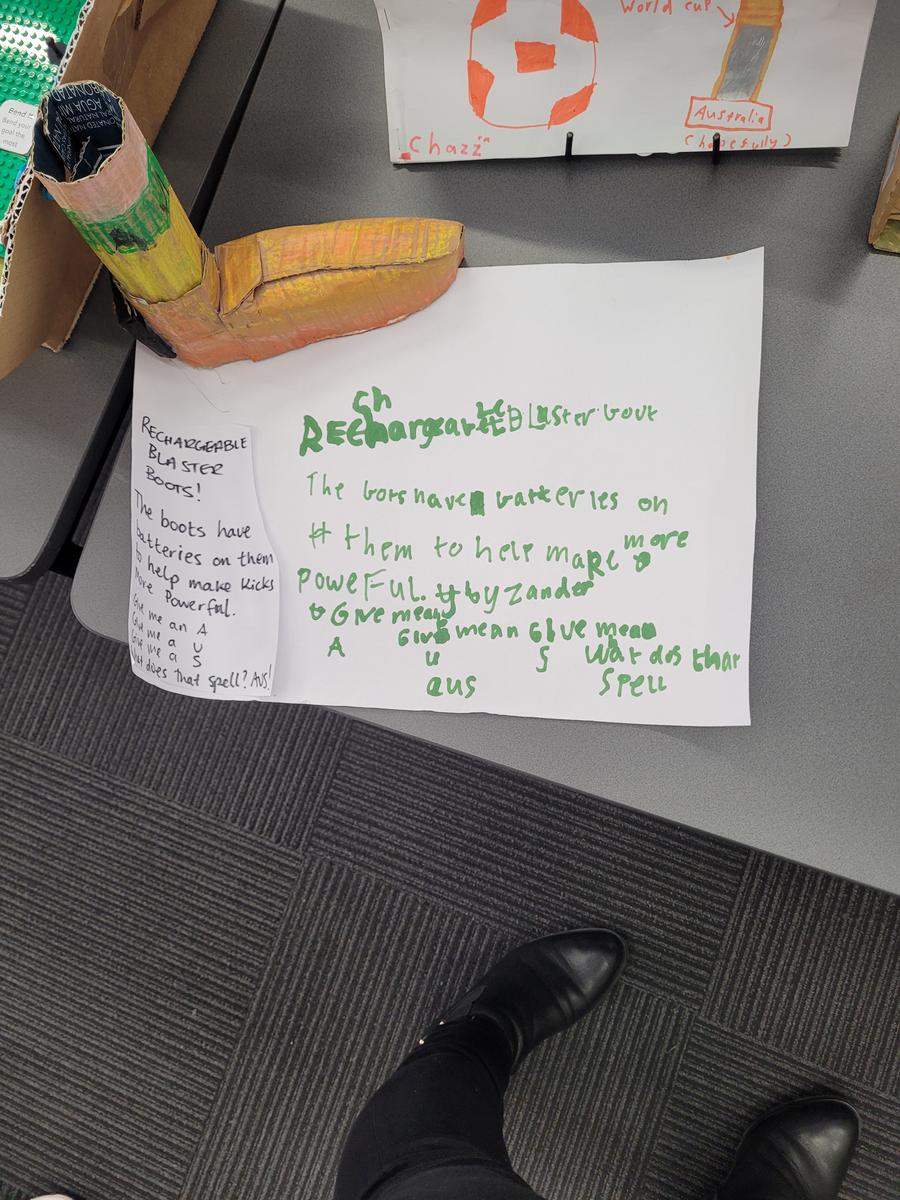 World cup
Australia
(hopefully)
Chazz
Bend it
Bend your
goal the
most
AGUA MIN
RECHARGEABLE
BLASTER
BOOTS!
The boots have
batteries on them
to help make kicks
more Powerful.
Give me an A
Give me a U
Give me a S
What does that spell? AUS!
Ch
REChargeable Blaster bout
The bots have batteries on
them to help make more
PoweFul. by Zander
Give mean Give mean Give mean
A U S Wat dos that
aus Spell